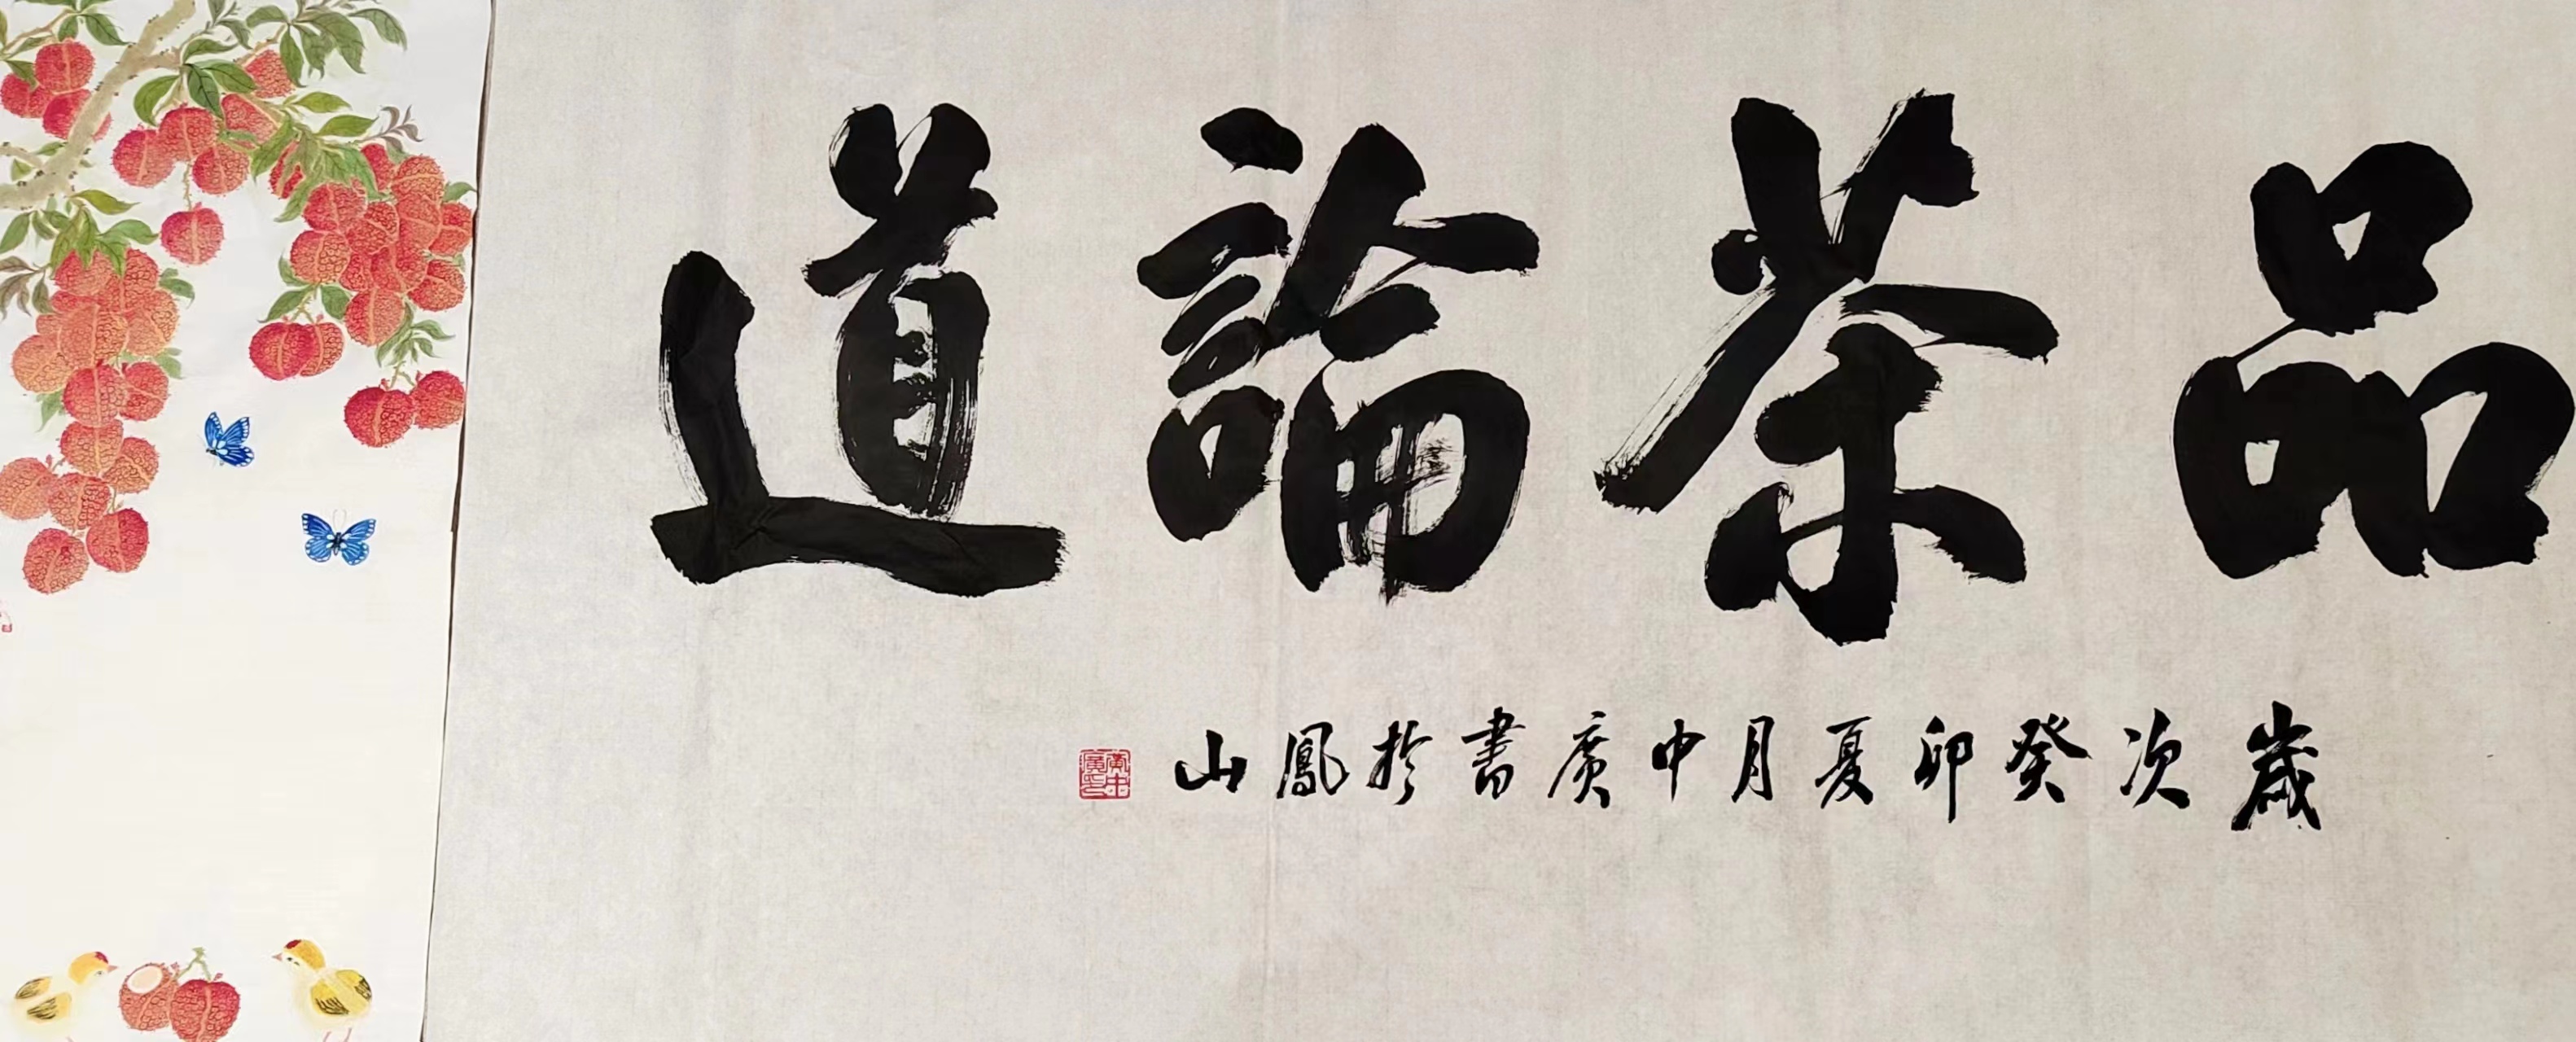 品茶論道
歲次癸卯夏月中廣書於鳳山